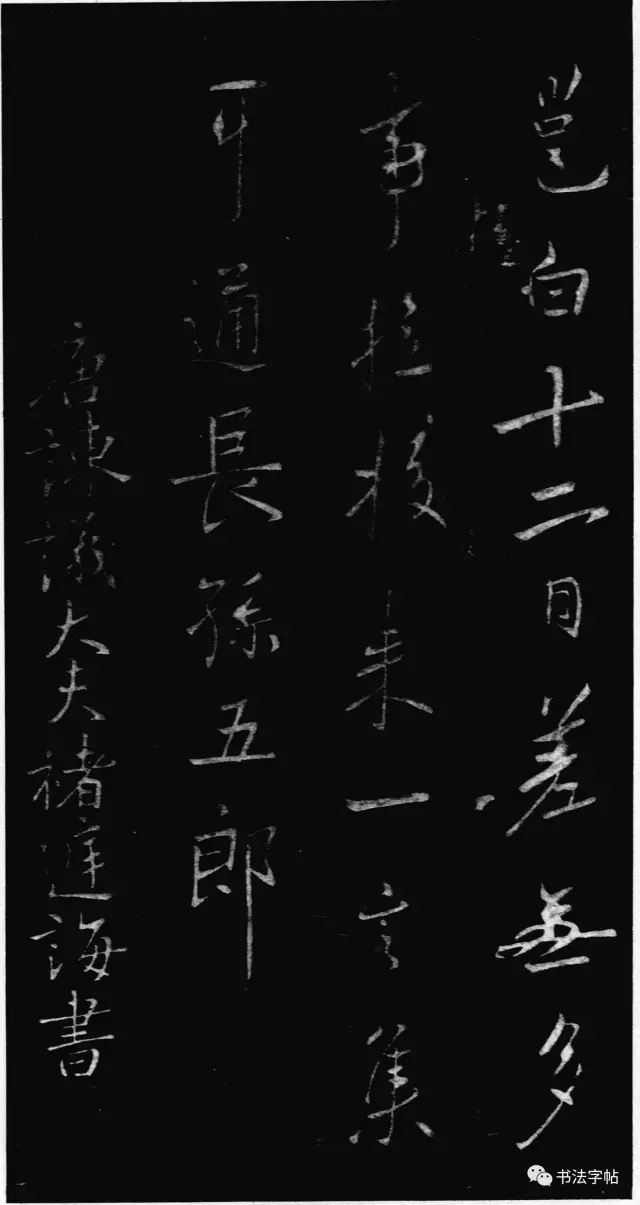 邕白十二日差無多
事拉杈未一言集
可通長孫五郎
唐諫議大夫褚庭誨書
书法字帖